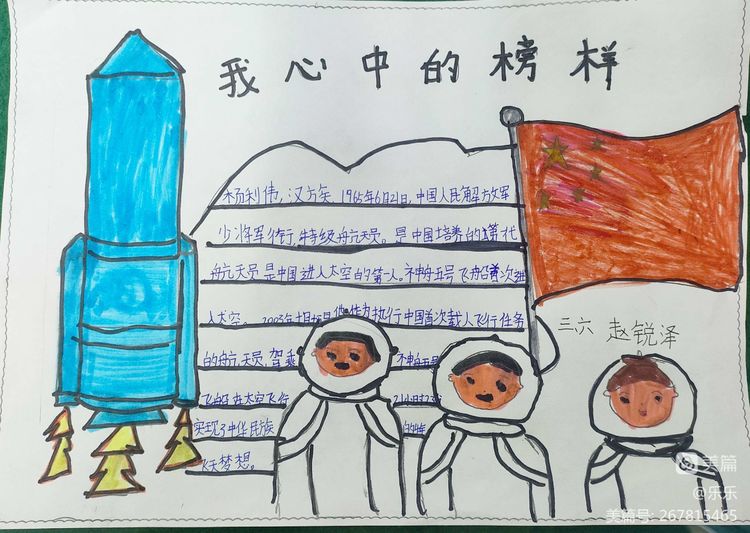 我心中的榜样
杨利伟,汉方矣 1965年6月21日,中国人民解放军
少将军衔,特级航天员。是中国培养的第代
航天员是中国进入太空的第一人。神舟五号飞船首次进
入太空。2003年十月 执行中国首次载人飞行任务
的航天员,驾乘 神舟五号
飞船在太空飞行 21小时23
实现了中华民族 的
飞天梦想。
三六 赵锐泽
美篇
@乐乐
美篇号: 267815465